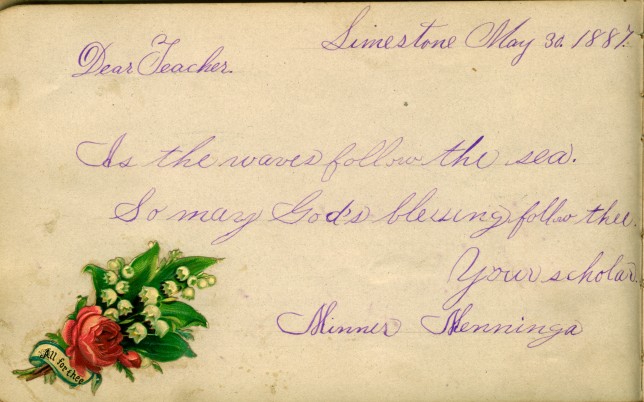 Limestone May 30. 1887.
Dear Teacher.
As the waves follow the sea.
So may God's blessing follow thee.
Your scholar
Minner Menninga
All for thee